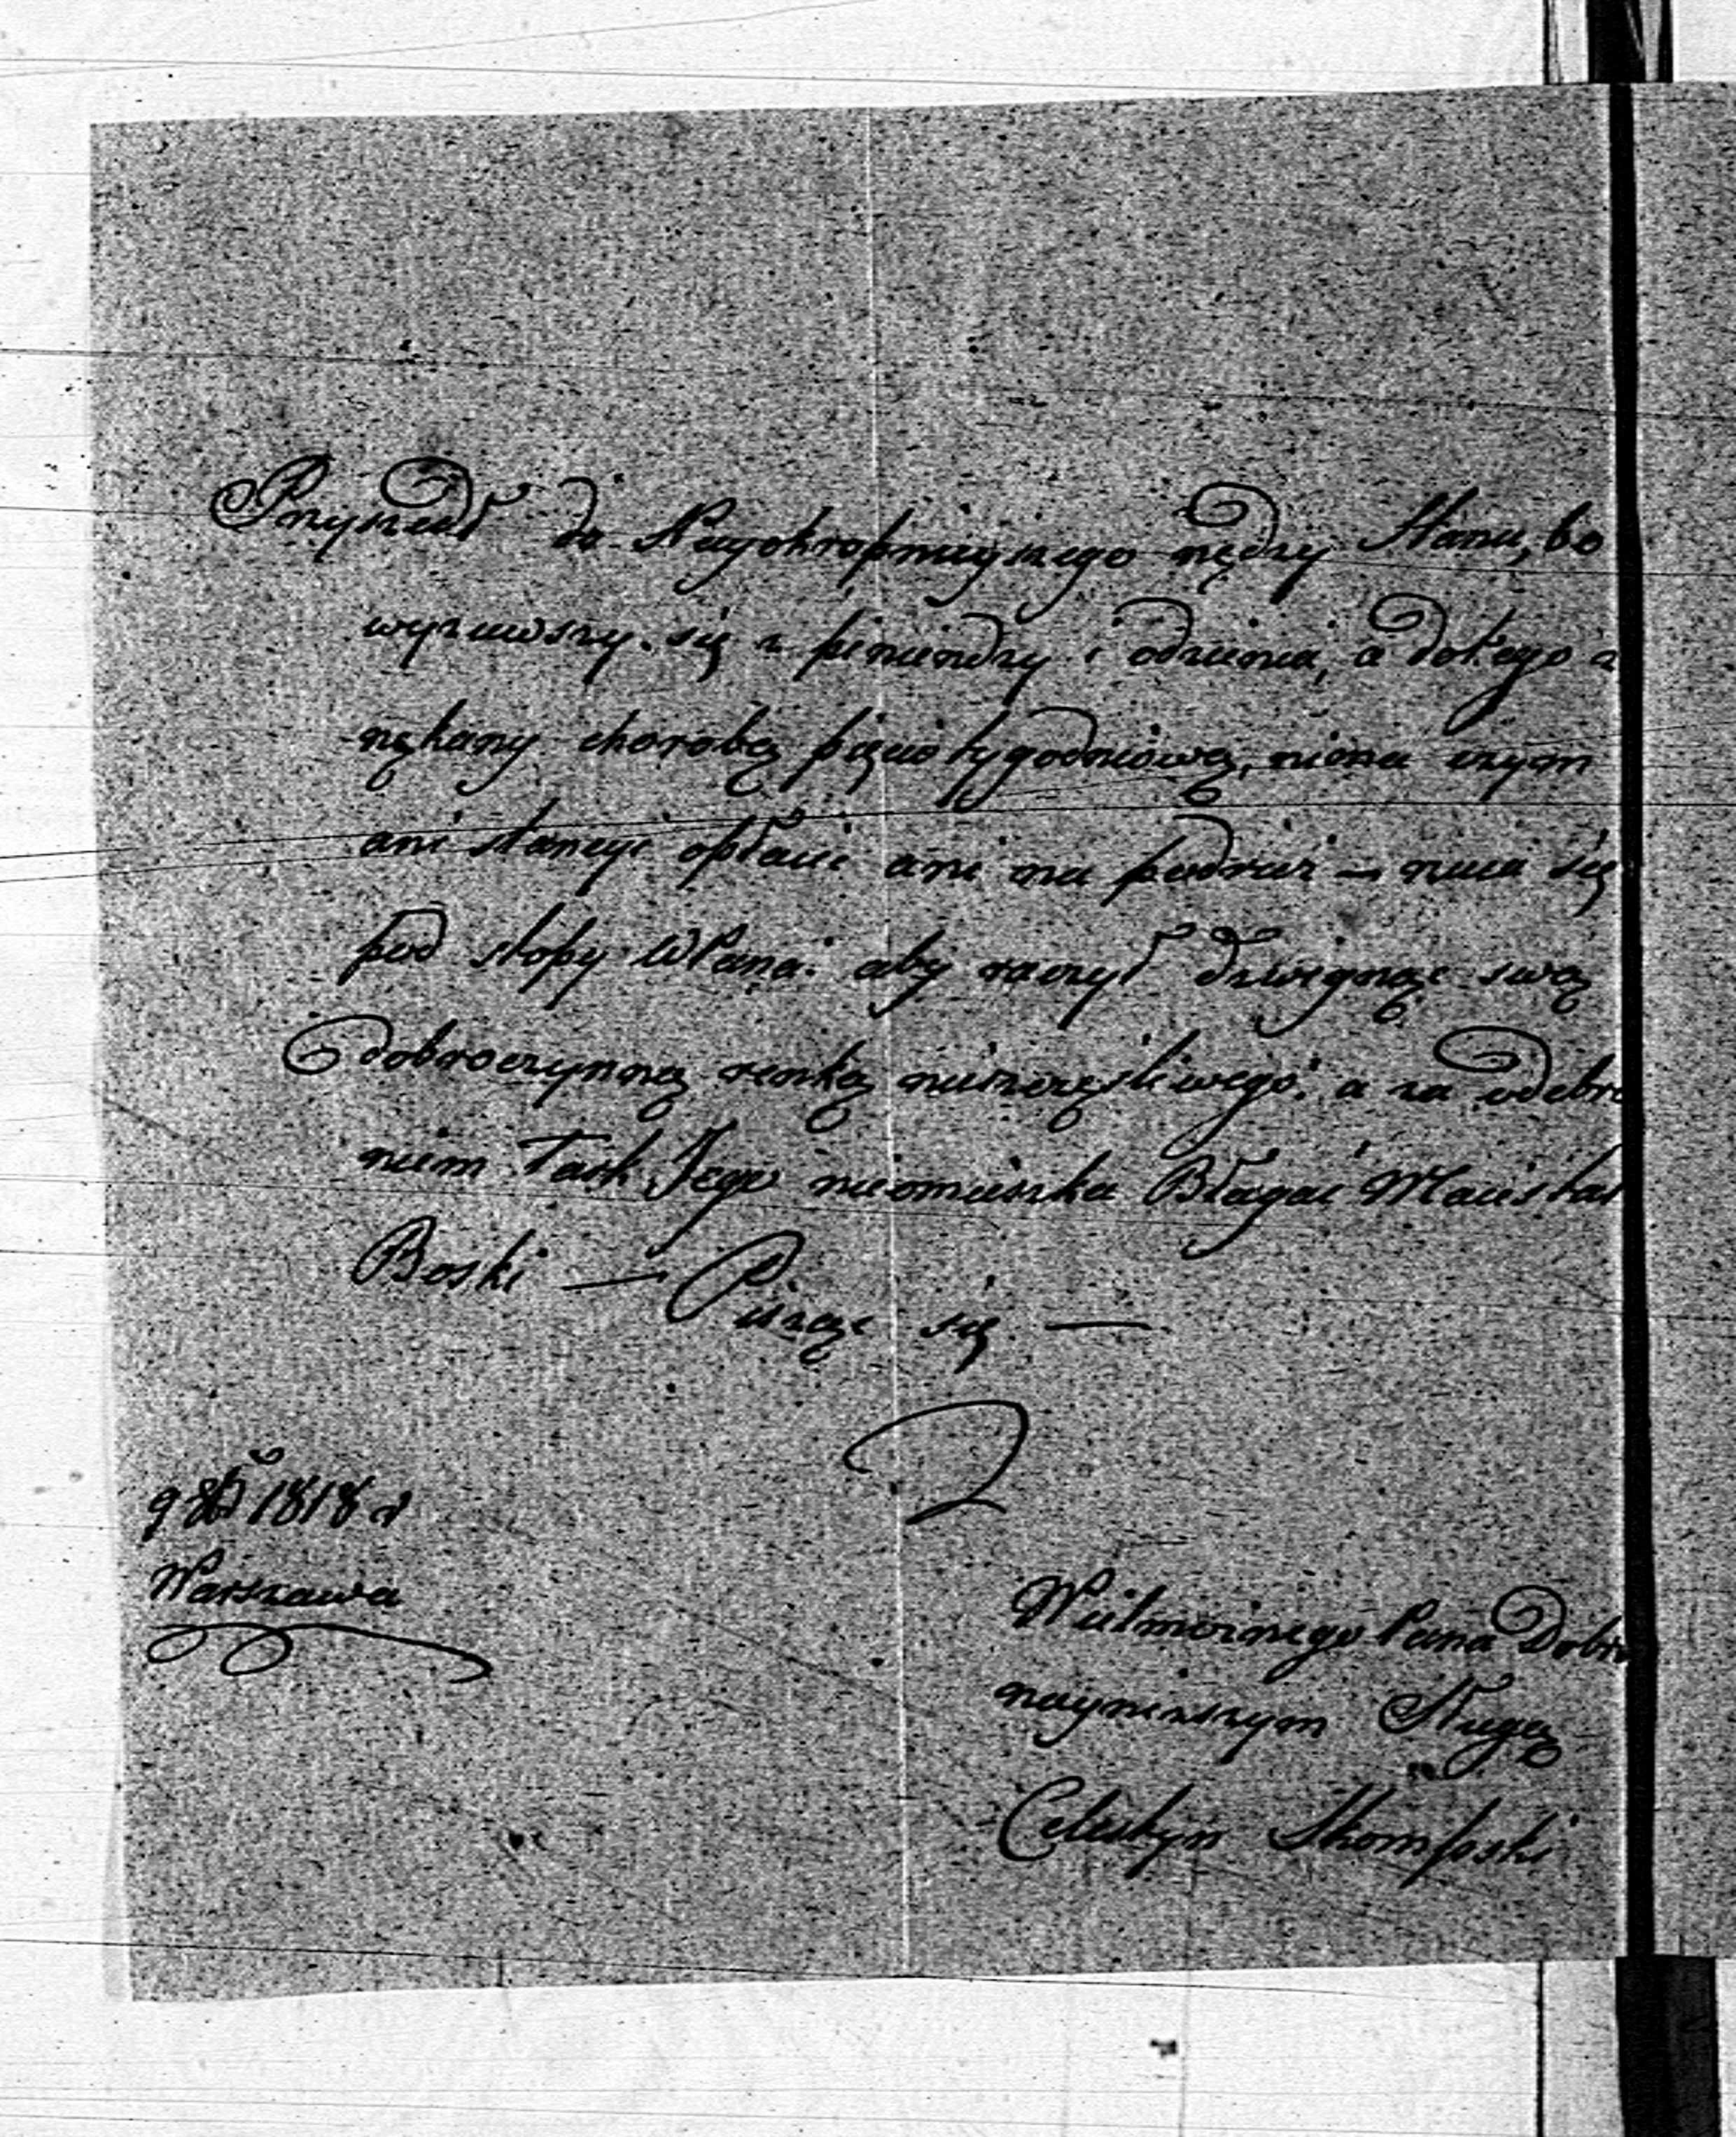 Przyszedł do Nayokropnieyszego nędzy Stanu, bo
wyzuwszy się z pieniendzy i odzienia, a dotego z
nękany chorobą pięciotygodniową, niema czym
ani stancyi opłacić ani na podruż — rzuca się
pod stopy WPana. aby raczył dzwignąć swą
dobroczynną renką nieszczęśliwego. a za odebra
niem łask Jego nieomieszka Błagać Maiestat
Boski — Pisząc się —
1818 r
Warszawa
Wielmożnego Pana Dobro
nayniższym Sługą
Celestyn